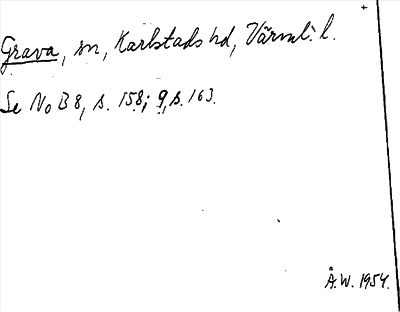 Grava, sn, Karlstads hd, Värml. l.
Se No B 8, s. 158; 9, s. 163.
Å.W. 1954.